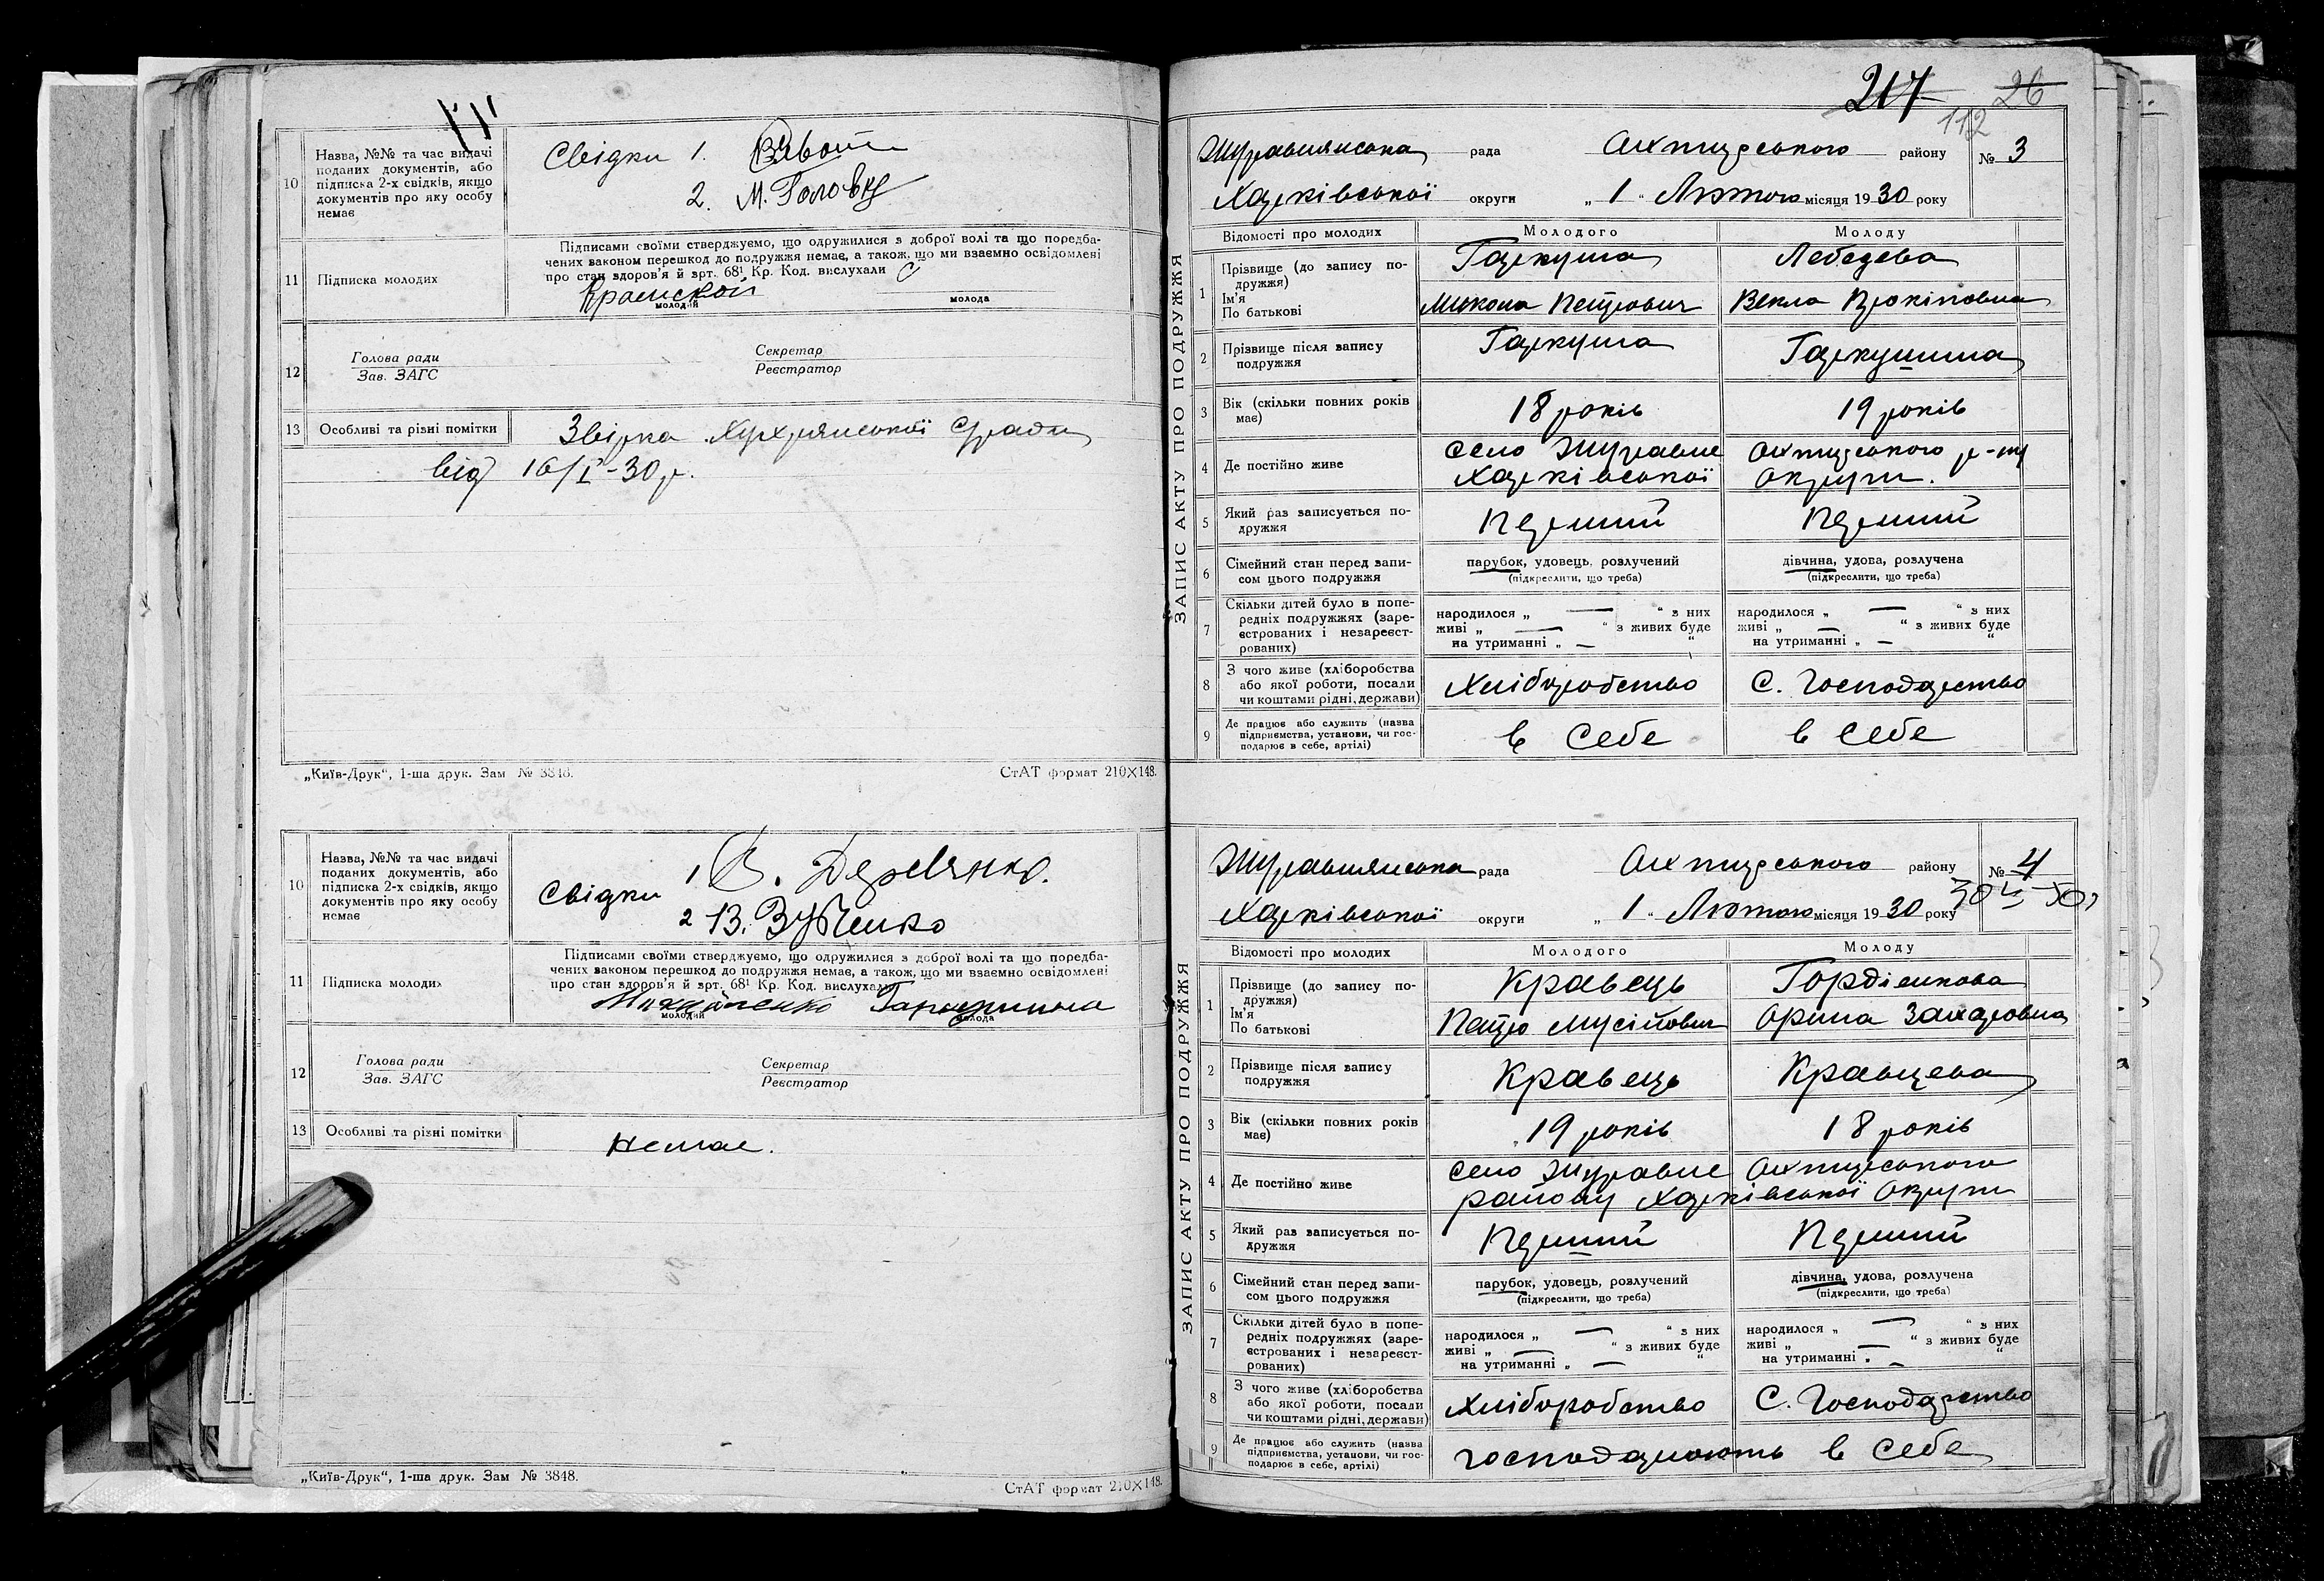 10 Назва, №№ та час видачі
поданих документів, або
підписка 2-х свідків, якщо
документів про яку особу
немає
Свідки 1.
2. М. Головко
11 Підписка молодих
Підписами своїми стверджуємо, що одружилися з доброї волі та що поредба-
чених законом перешкод до подружжя немає, а також, що ми взаємно освідомлені
про стан здоров'я й арт. 68¹ Кр. Код. вислухали
молодий молода
12 Голова ради
Зав. ЗАГС
Секретар
Реєстратор
13 Особливі та різні помітки
Звірка Хухрянської с/ради
від 16/I-30 р.
„Київ-Друк“, 1-ша друк. Зам № 3848. СтАТ формат 210×148.
10 Назва, №№ та час видачі
поданих документів, або
підписка 2-х свідків, якщо
документів про яку особу
немає
Свідки 1 В. Деревянко.
2 В. Зубченко
11 Підписка молодих
Підписами своїми стверджуємо, що одружилися з доброї волі та що поредба-
чених законом перешкод до подружжя немає, а також, що ми взаємно освідомлені
про стан здоров'я й арт. 68¹ Кр. Код. вислухали
молодий молода
12 Голова ради
Зав. ЗАГС
Секретар
Реєстратор
13 Особливі та різні помітки
Немає.
„Київ-Друк“, 1-ша друк. Зам № 3848.
СтАТ формат 210×148.
217 26
112
Журавлянська рада Охтирського району № 3
Харківської округи „ 1 “ Лютого місяця 1930 року
ЗАПИС АКТУ ПРО ПОДРУЖЖЯ
Відомості про молодих Молодого Молоду
1 Прізвище (до запису по-
дружжя)
Ім'я
По батькові
Гаркуша Лебедева
Микола Петрович Векла Прокіповна
2 Прізвище після запису
подружжя
Гаркуша Гаркушина
3 Вік (скільки повних років
має)
18 років 19 років
4 Де постійно живе
Село Журавне Охтирського р-ну
Харківської Округи.
5 Який раз записується по-
дружжя
Перший Перший
6 Сімейний стан перед запи-
сом цього подружжя
парубок, удовець, розлучений дівчина, удова, розлучена
(підкреслити, що треба) (підкреслити, що треба)
7 Скільки дітей було в попе-
редніх подружжях (заре-
єстрованих і незареєст-
рованих)
народилося „ — “ з них народилося „ — “ з них
живі „ — “ з живих буде живі „ — “ з живих буде
на утриманні „ — “ на утриманні „ — “
8 З чого живе (хліборобства
або якої роботи, посади
чи коштами рідні, держави)
Хліборобство С. Господарство
9 Де працює або служить (назва
підприємства, установи, чи гос-
подарює в себе, артілі)
в Себе в Себе
Журавлянська рада Охтирського району № 4
Харківської округи „ 1 “ Лютого місяця 1930 року
ЗАПИС АКТУ ПРО ПОДРУЖЖЯ
Відомості про молодих Молодого Молоду
1 Прізвище (до запису по-
дружжя)
Ім'я
По батькові
Кравець Гордієнкова
Петро Мусійович Орина Захаровна
2 Прізвище після запису
подружжя
Кравець Кравцева
3 Вік (скільки повних років
має)
19 років 18 років
4 Де постійно живе
Село Журавне Охтирського
району Харківської Округи
5 Який раз записується по-
дружжя
Перший Перший
6 Сімейний стан перед запи-
сом цього подружжя
парубок, удовець, розлучений дівчина, удова, розлучена
(підкреслити, що треба) (підкреслити, що треба)
7 Скільки дітей було в попе-
редніх подружжях (заре-
єстрованих і незареєст-
рованих)
народилося „ — “ з них народилося „ — “ з них
живі „ — “ з живих буде живі „ — “ з живих буде
на утриманні „ — “ на утриманні „ — “
8 З чого живе (хліборобства
або якої роботи, посади
чи коштами рідні, держави)
Хліборобство С. Господарство
9 Де працює або служить (назва
підприємства, установи, чи гос-
подарює в себе, артілі)
господарюють в Себе